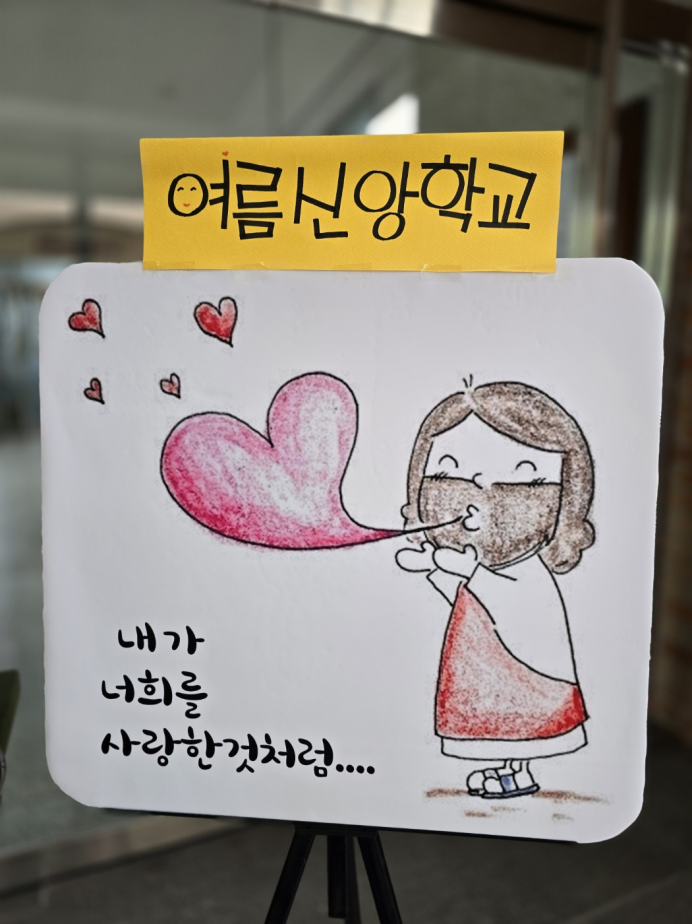 여름신앙학교
내가
너희를
사랑한것처럼....